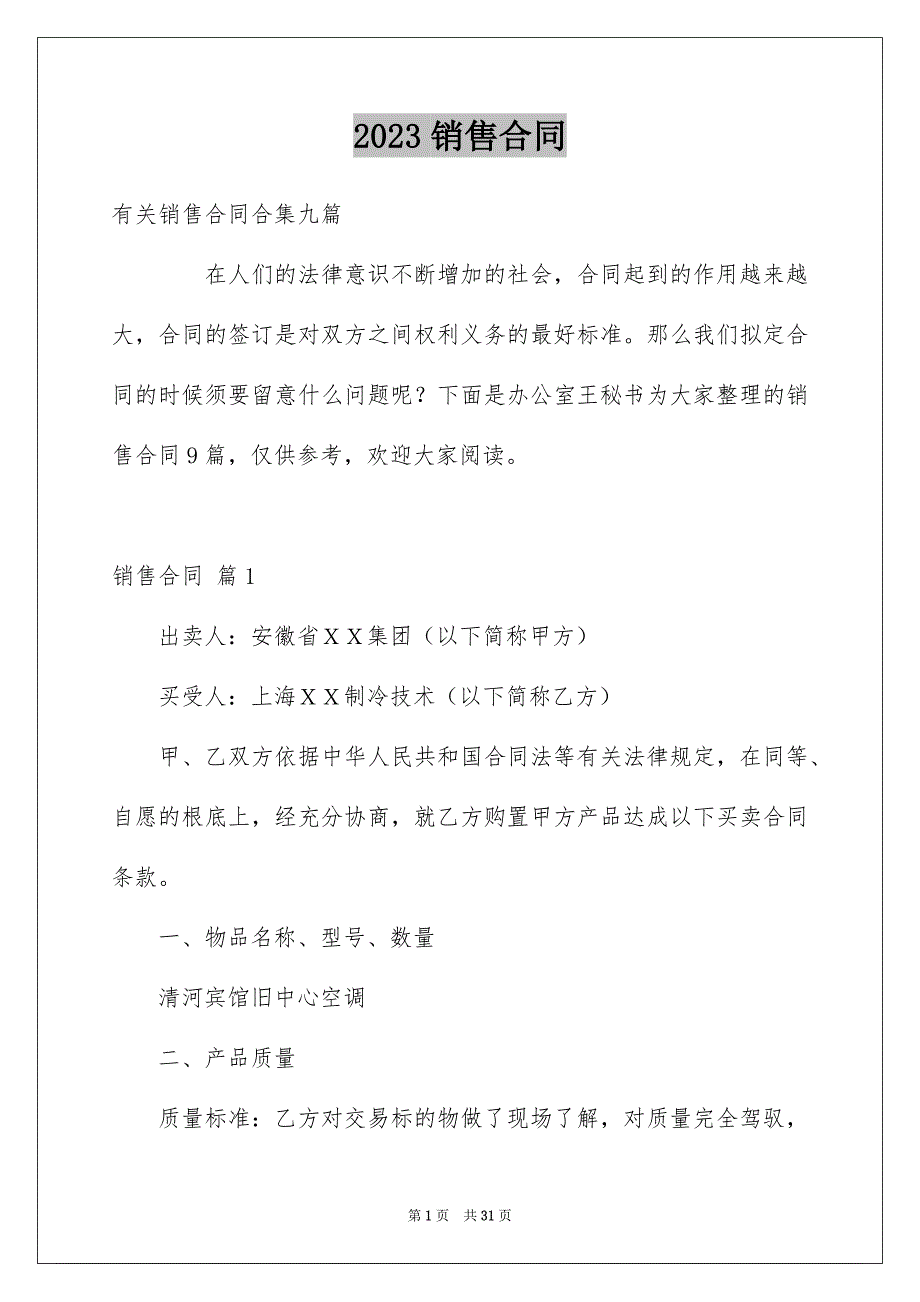 2023销售合同
有关销售合同合集九篇
在人们的法律意识不断增加的社会，合同起到的作用越来越
大，合同的签订是对双方之间权利义务的最好标准。那么我们拟定合
同的时候须要留意什么问题呢？下面是办公室王秘书为大家整理的销
售合同9篇，仅供参考，欢迎大家阅读。
销售合同 篇1
出卖人：安徽省ＸＸ集团（以下简称甲方）
买受人：上海ＸＸ制冷技术（以下简称乙方）
甲、乙双方依据中华人民共和国合同法等有关法律规定，在同等、
自愿的根底上，经充分协商，就乙方购置甲方产品达成以下买卖合同
条款。
一、物品名称、型号、数量
清河宾馆旧中心空调
二、产品质量
质量标准：乙方对交易标的物做了现场了解，对质量完全驾驭，
第1页 共31页